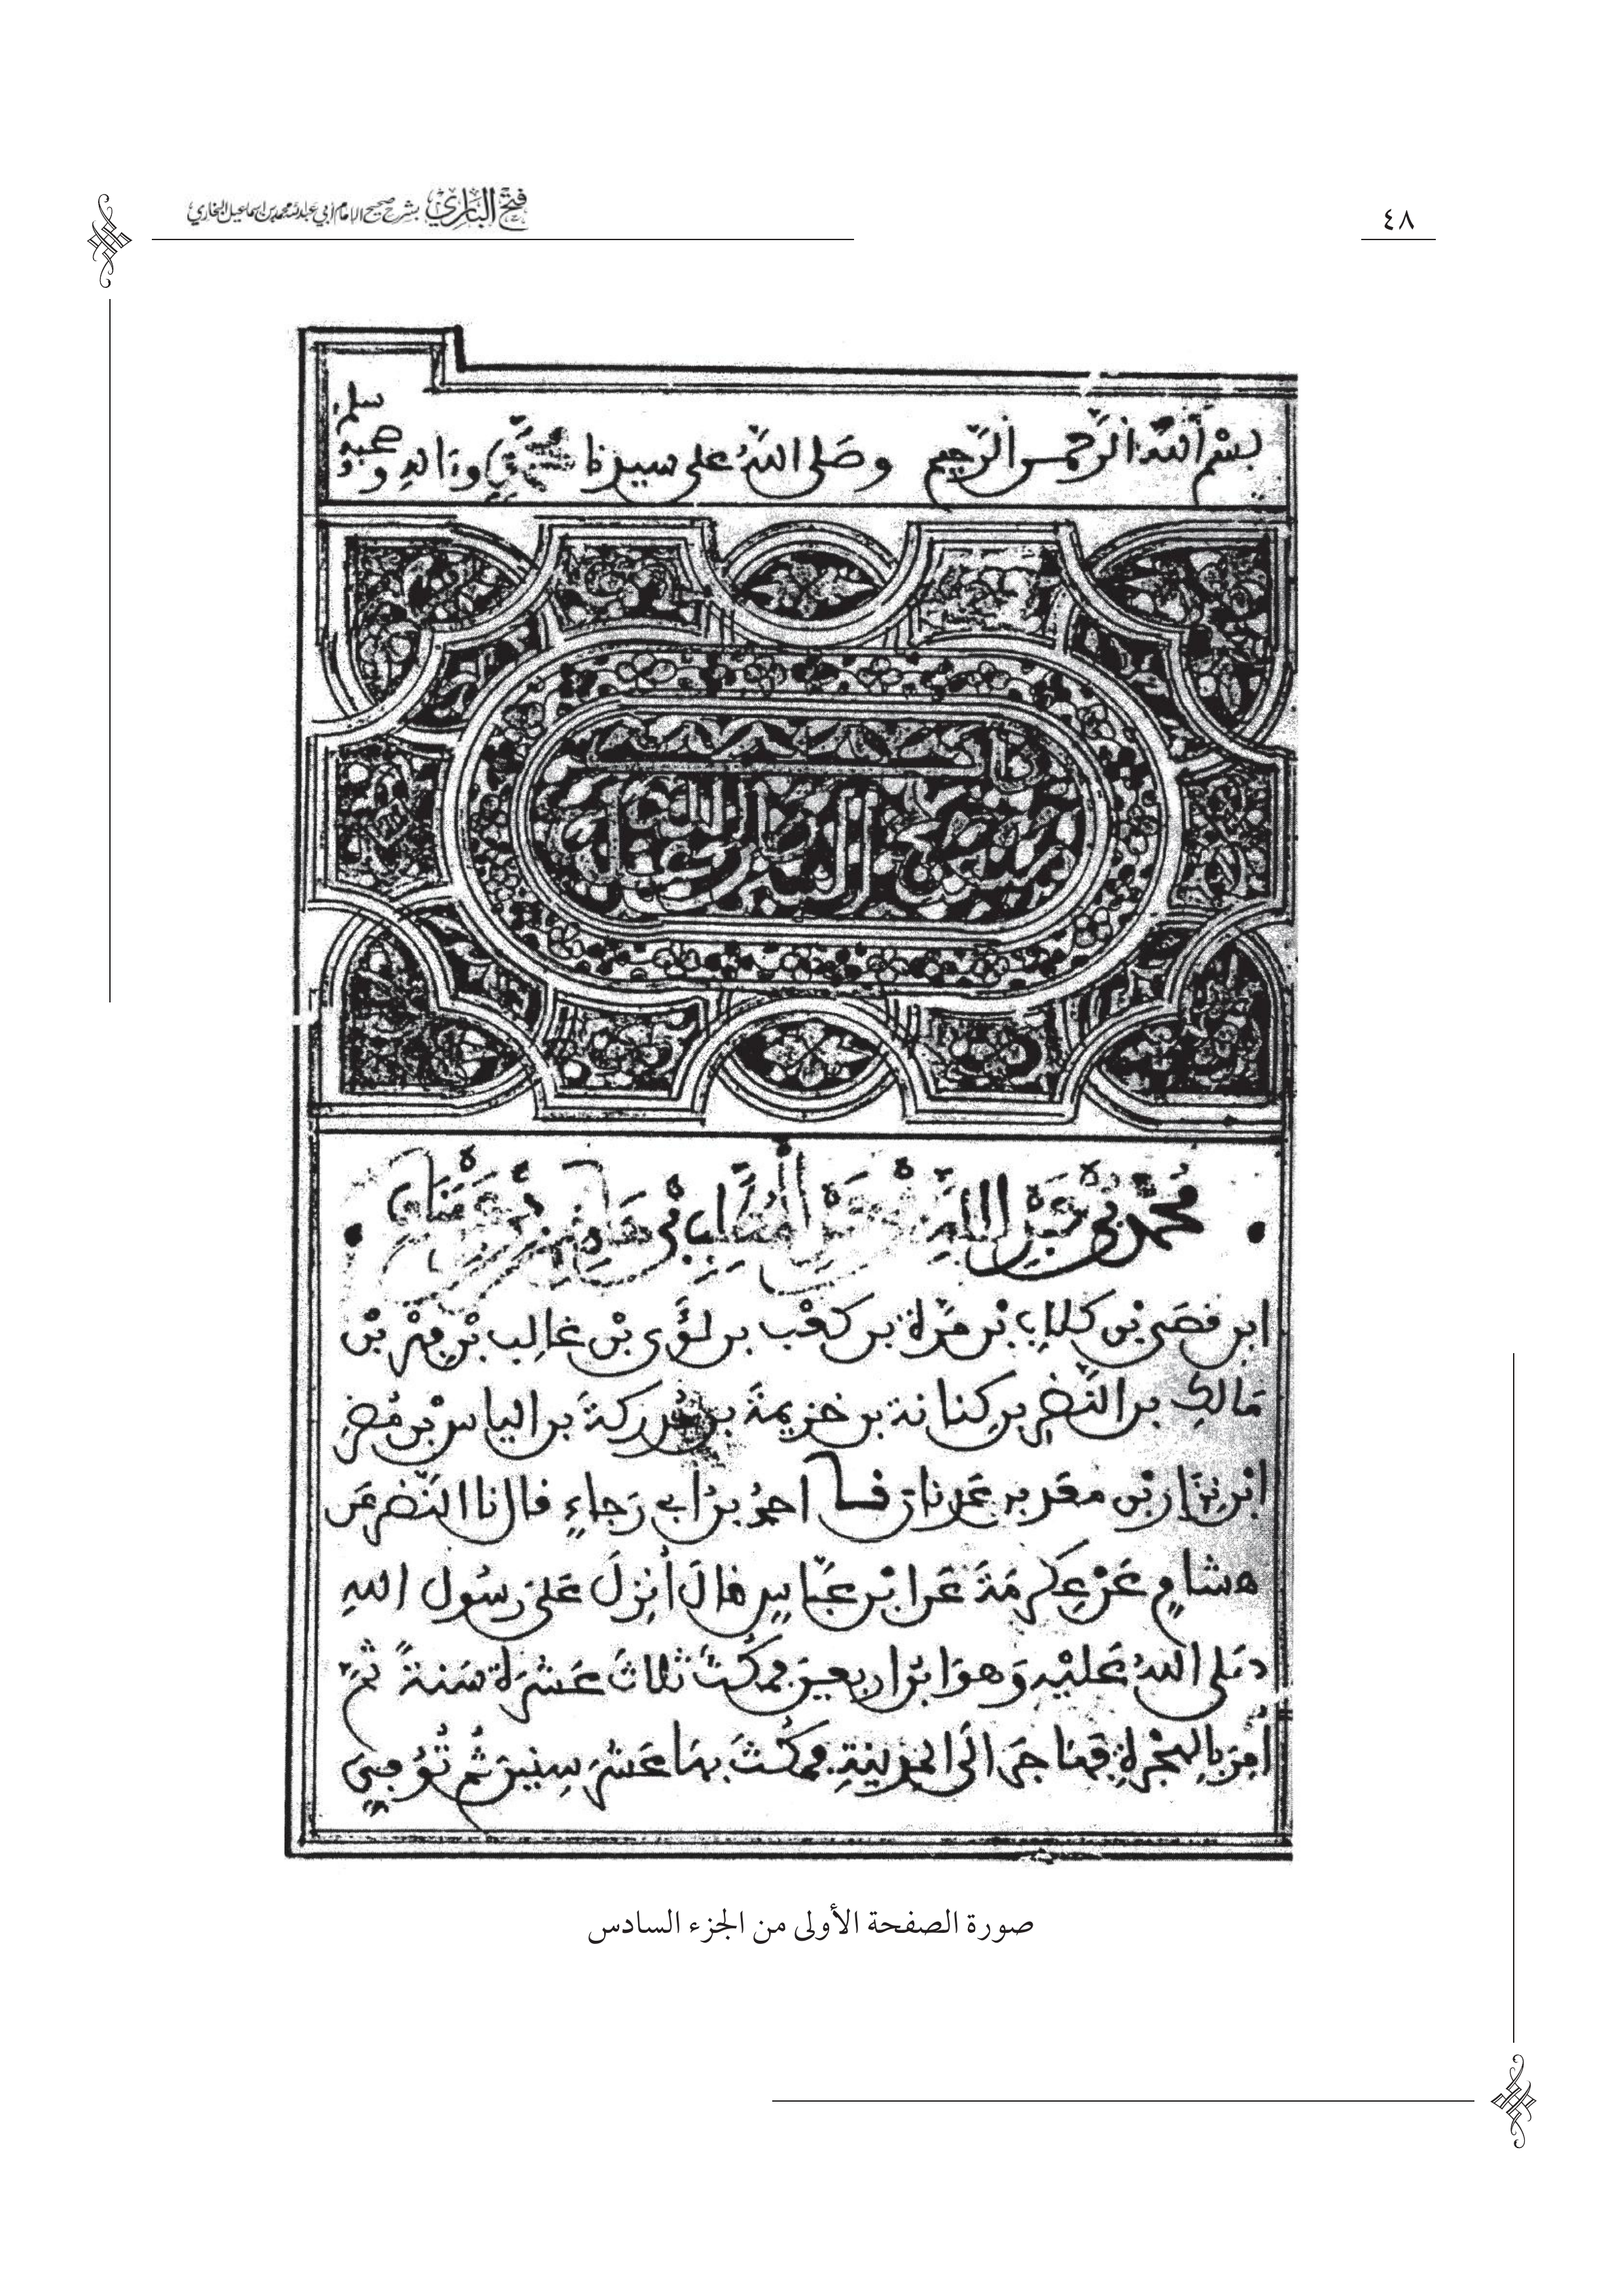 ٤٨
فتح الباري بشرح صحيح الإمام أبي عبد الله محمد بن إسماعيل البخاري
بسم الله الرحمن الرحيم وصلى الله على سيدنا محمد وءاله وصحبه وسلم
مبعث النبي صلى الله عليه
محمد بن عبد الله بن عبد المطلب بن هاشم بن عبد مناف
ابن قصي بن كلاب بن مرة بن كعب بن لؤي بن غالب بن فهر بن
مالك بن النضر بن كنانة بن خزيمة بن مدركة بن الياس بن مضر
ابن نزار بن معد بن عدنان نا احمد بن ابي رجاء قال نا النضر عن
هشام عن عكرمة عن ابن عباس قال أنزل على رسول الله
صلى الله عليه وهو ابن اربعين فمكث ثلاث عشرة سنة ثم
أمر بالهجرة فهاجر الى المدينة فمكث بها عشر سنين ثم توفي
صورة الصفحة الأولى من الجزء السادس